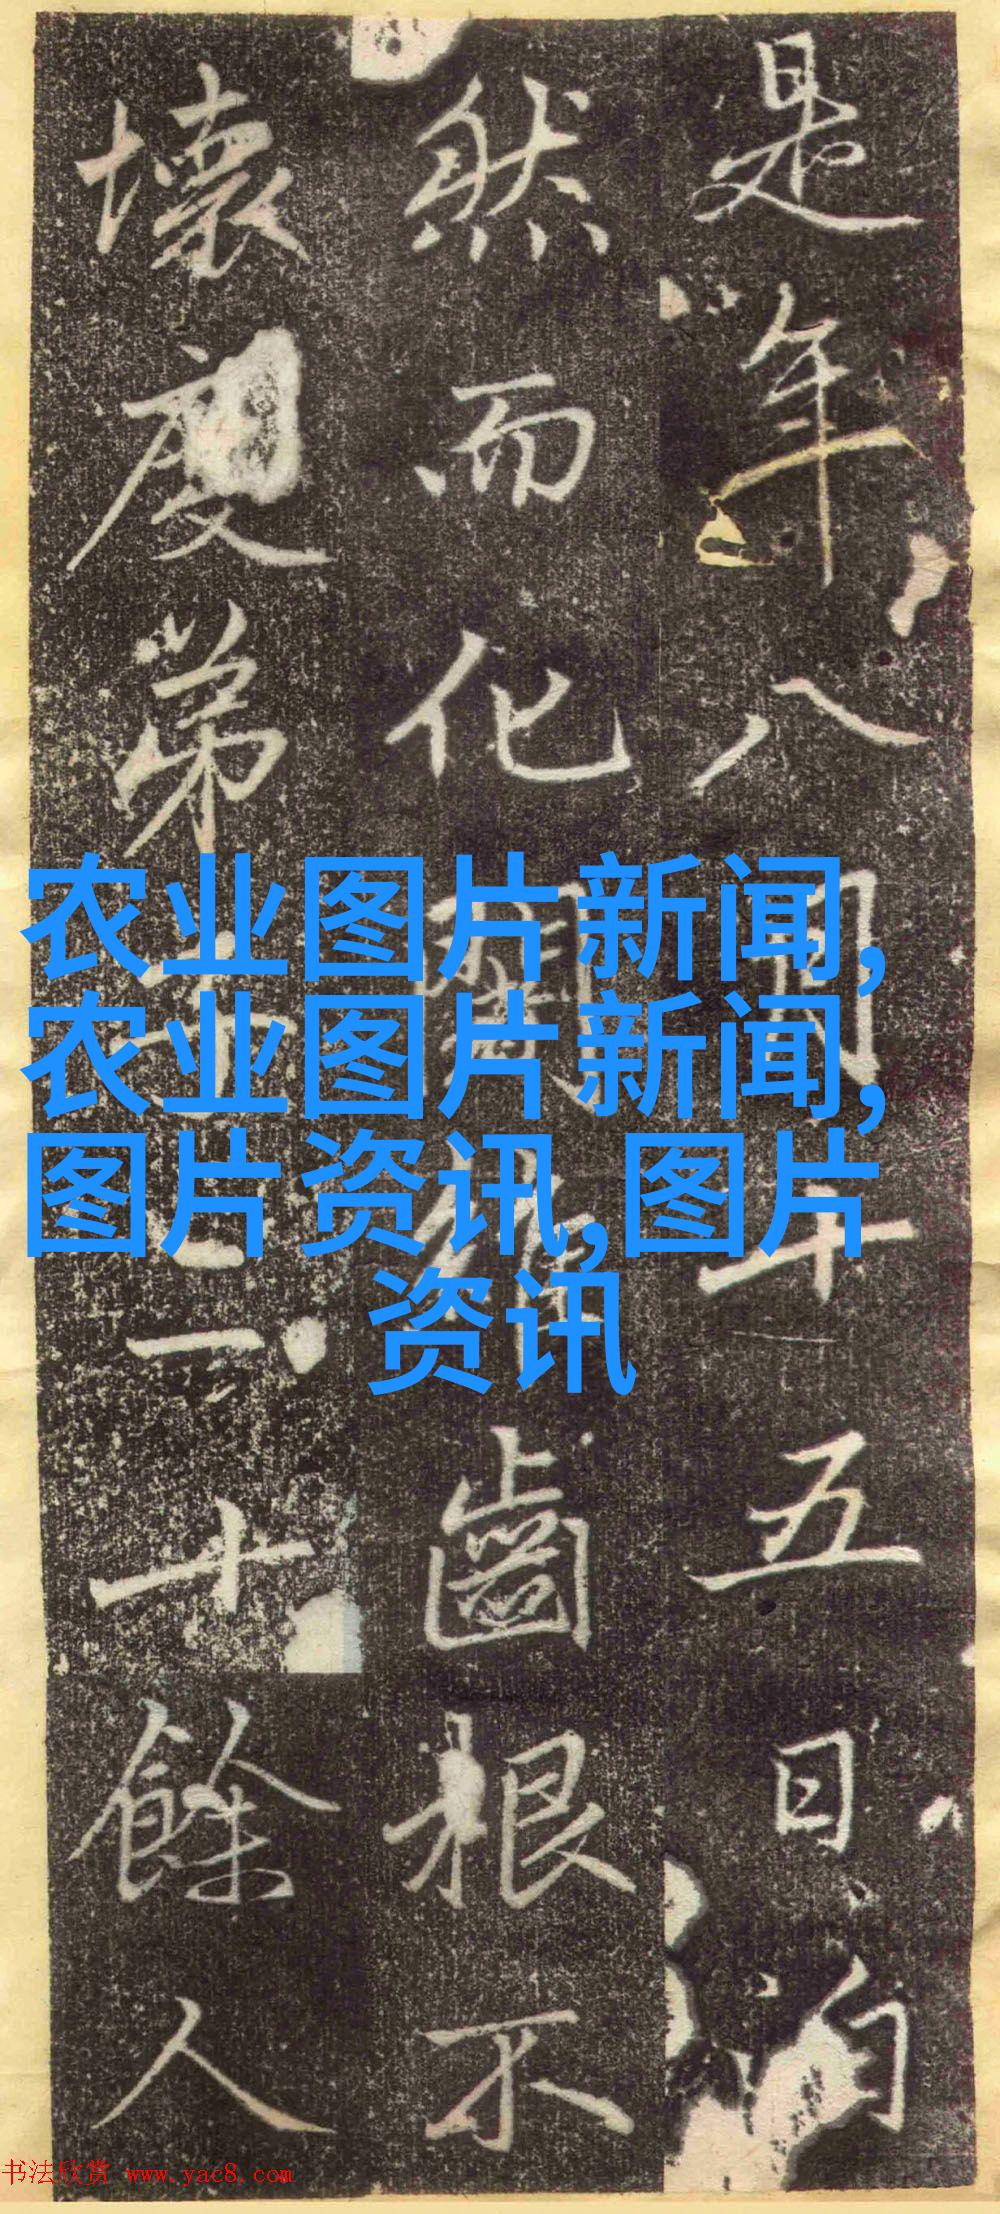 是年八月十五日
然而化
齒根不
壞度弟子三十餘人
农业图片新闻,
农业图片新闻,
图片资讯,图片
资讯
书法欣赏 www.yac8.com